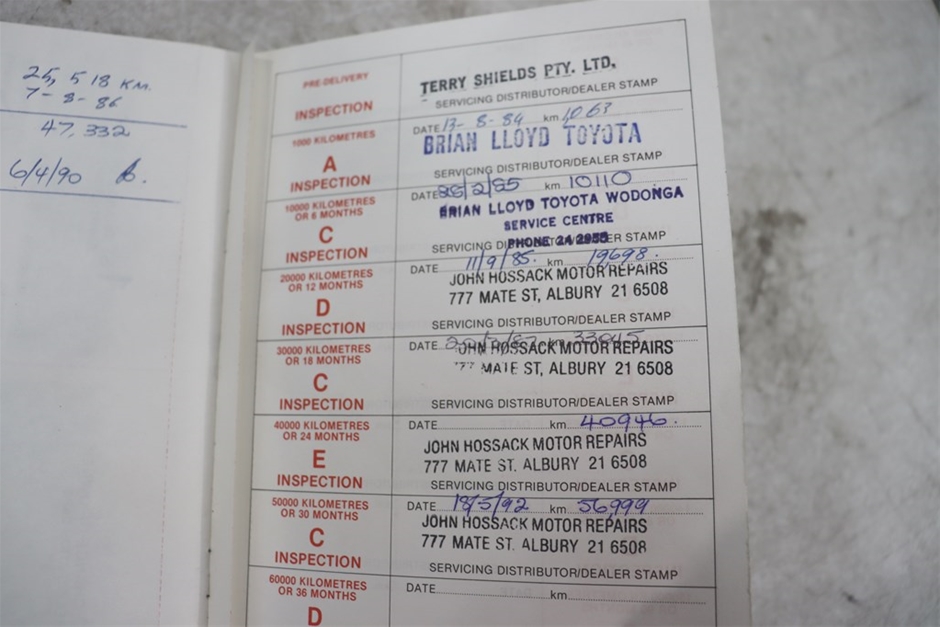 25,518 KM.
7-8-86
47,332
6/4/90
PRE-DELIVERY
INSPECTION
TERRY SHIELDS PTY. LTD.
SERVICING DISTRIBUTOR/DEALER STAMP
1000 KILOMETRES
A
INSPECTION
DATE 13-8-84 km 1063
BRIAN LLOYD TOYOTA
SERVICING DISTRIBUTOR/DEALER STAMP
10000 KILOMETRES
OR 6 MONTHS
C
INSPECTION
DATE /2/85 km 10110
BRIAN LLOYD TOYOTA WODONGA
SERVICE CENTRE
PHONE 24 2955
SERVICING DISTRIBUTOR/DEALER STAMP
20000 KILOMETRES
OR 12 MONTHS
D
INSPECTION
DATE 11/9/85. km 19698.
JOHN HOSSACK MOTOR REPAIRS
777 MATE ST, ALBURY 21 6508
SERVICING DISTRIBUTOR/DEALER STAMP
30000 KILOMETRES
OR 18 MONTHS
C
INSPECTION
DATE km 33045
JOHN HOSSACK MOTOR REPAIRS
777 MATE ST, ALBURY 21 6508
SERVICING DISTRIBUTOR/DEALER STAMP
40000 KILOMETRES
OR 24 MONTHS
E
INSPECTION
DATE km 40946.
JOHN HOSSACK MOTOR REPAIRS
777 MATE ST. ALBURY 21 6508
SERVICING DISTRIBUTOR/DEALER STAMP
50000 KILOMETRES
OR 30 MONTHS
C
INSPECTION
DATE 18/5/92 km 56999
JOHN HOSSACK MOTOR REPAIRS
777 MATE ST. ALBURY 21 6508
SERVICING DISTRIBUTOR/DEALER STAMP
60000 KILOMETRES
OR 36 MONTHS
D
DATE km